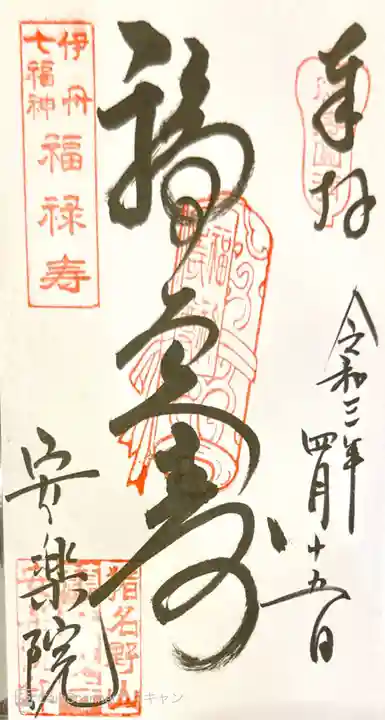 奉拝
令和三年
四月十五日
福禄寿
福禄寿
伊丹
七福神
福禄寿
安楽院
猪名野山